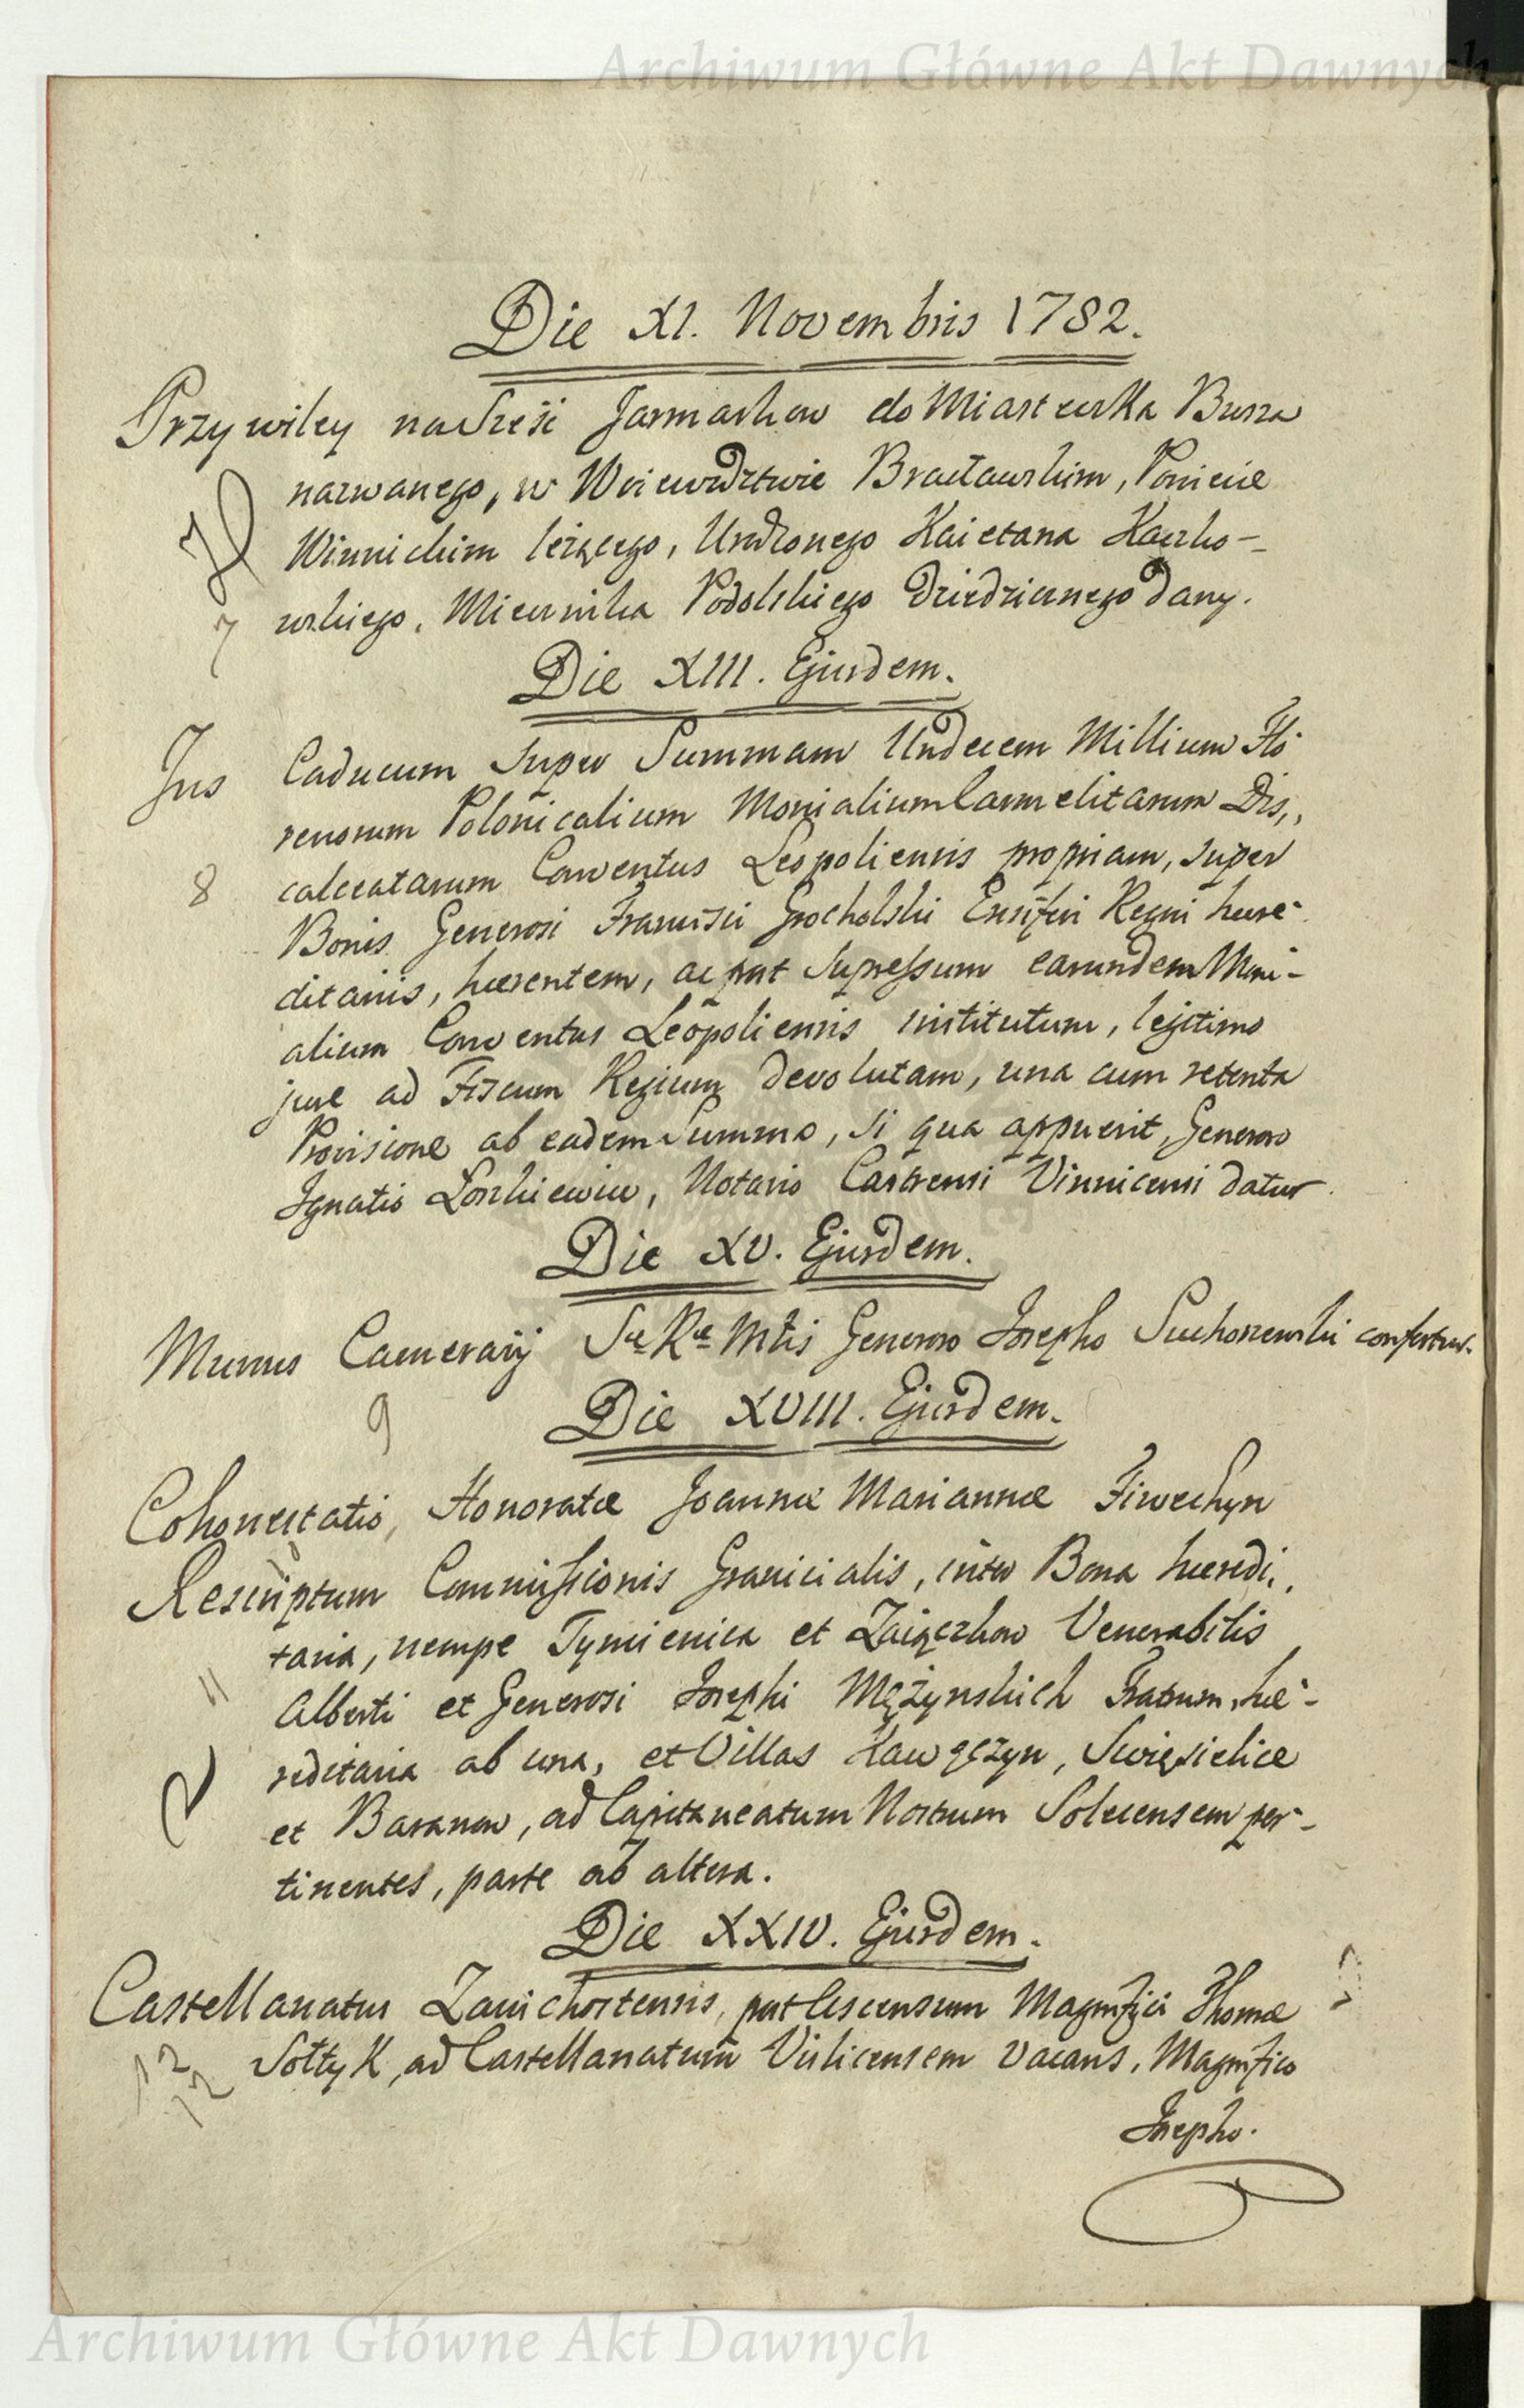 Archiwum Główne Akt Dawnych
Die XI. Novembris 1782.
Przywiley na Sześć Jarmarkow do Miasteczka Busza
nazwanego, w Woiewodztwie Bracławskim, Powiecie
Winnickim leżącego, Urodzonego Kaietana Kaczko-
wskiego, Miecznika Podolskiego Dziedzicznego dany.
7
Die XIII. Ejusdem.
Jus Caducum super Summam Undecem Millium Flo-
renorum Polonicalium Monialium Carmelitarum Dis,,
8 calceatarum Conventus Leopoliensis propriam, super
Bonis Generosi Francisci Grocholski Ensiferi Regni hære-
ditariis, hærentem, ac post supressum earundem Moni-
alium Conventus Leopoliensis institutum, legitimo
jure ad Fiscum Regium devolutam, una cum retenta
Provisione ab eadem Summa, si qua appuerit, Generoso
Ignatio, Notario Castrensi Vinnicensi datur.
Die XV. Ejusdem.
Munus Camerarij Sæ Ræ Mtis Generoso Josepho Suchorzewski confertur.
9
Die XVIII. Ejusdem.
Cohonestatio, Honoratæ Joannæ Mariannæ
Rescriptum Commissionis Granicialis, inter Bona hæredi,,
taria, nempe Tymienica et Zaiączkow Venerabilis
11 Alberti et Generosi Josephi Mężynskich Fratrum, hæ-
reditaria ab una, et Villas Kawęczyn, Swięsielice
et Baranow, ad Capitaneatum Nostrum Solecensem per-
tinentes, parte ab altera.
Die XXIV. Ejusdem.
Castellanatus Zawichostensis, post Ascensum Magnifici Thomæ
12 Sołtyk, ad Castellanatum Vislicensem vacans, Magnifico
12
Josepho.
Archiwum Główne Akt Dawnych